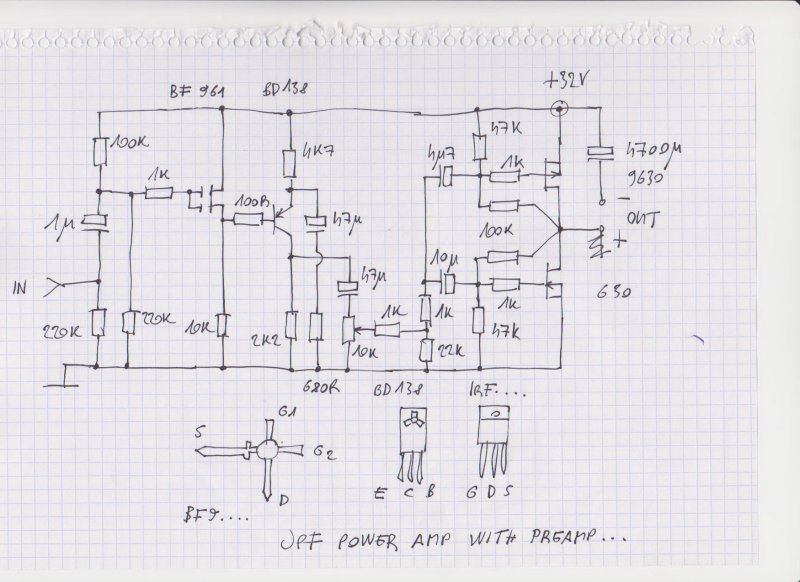 BF 961
BD138
+32V
100K
1K
4K7
47K
4µ7
1K
4700µ
9630
100R
1µ
47µ
OUT
-
+
100K
10µ
47µ
IN
630
1K
1K
1K
220K
220K
10K
2K2
10K
22K
47K
680R
BD138
IRF....
G1
S
G2
D
E C B
G D S
BF9....
JPF POWER AMP WITH PREAMP...